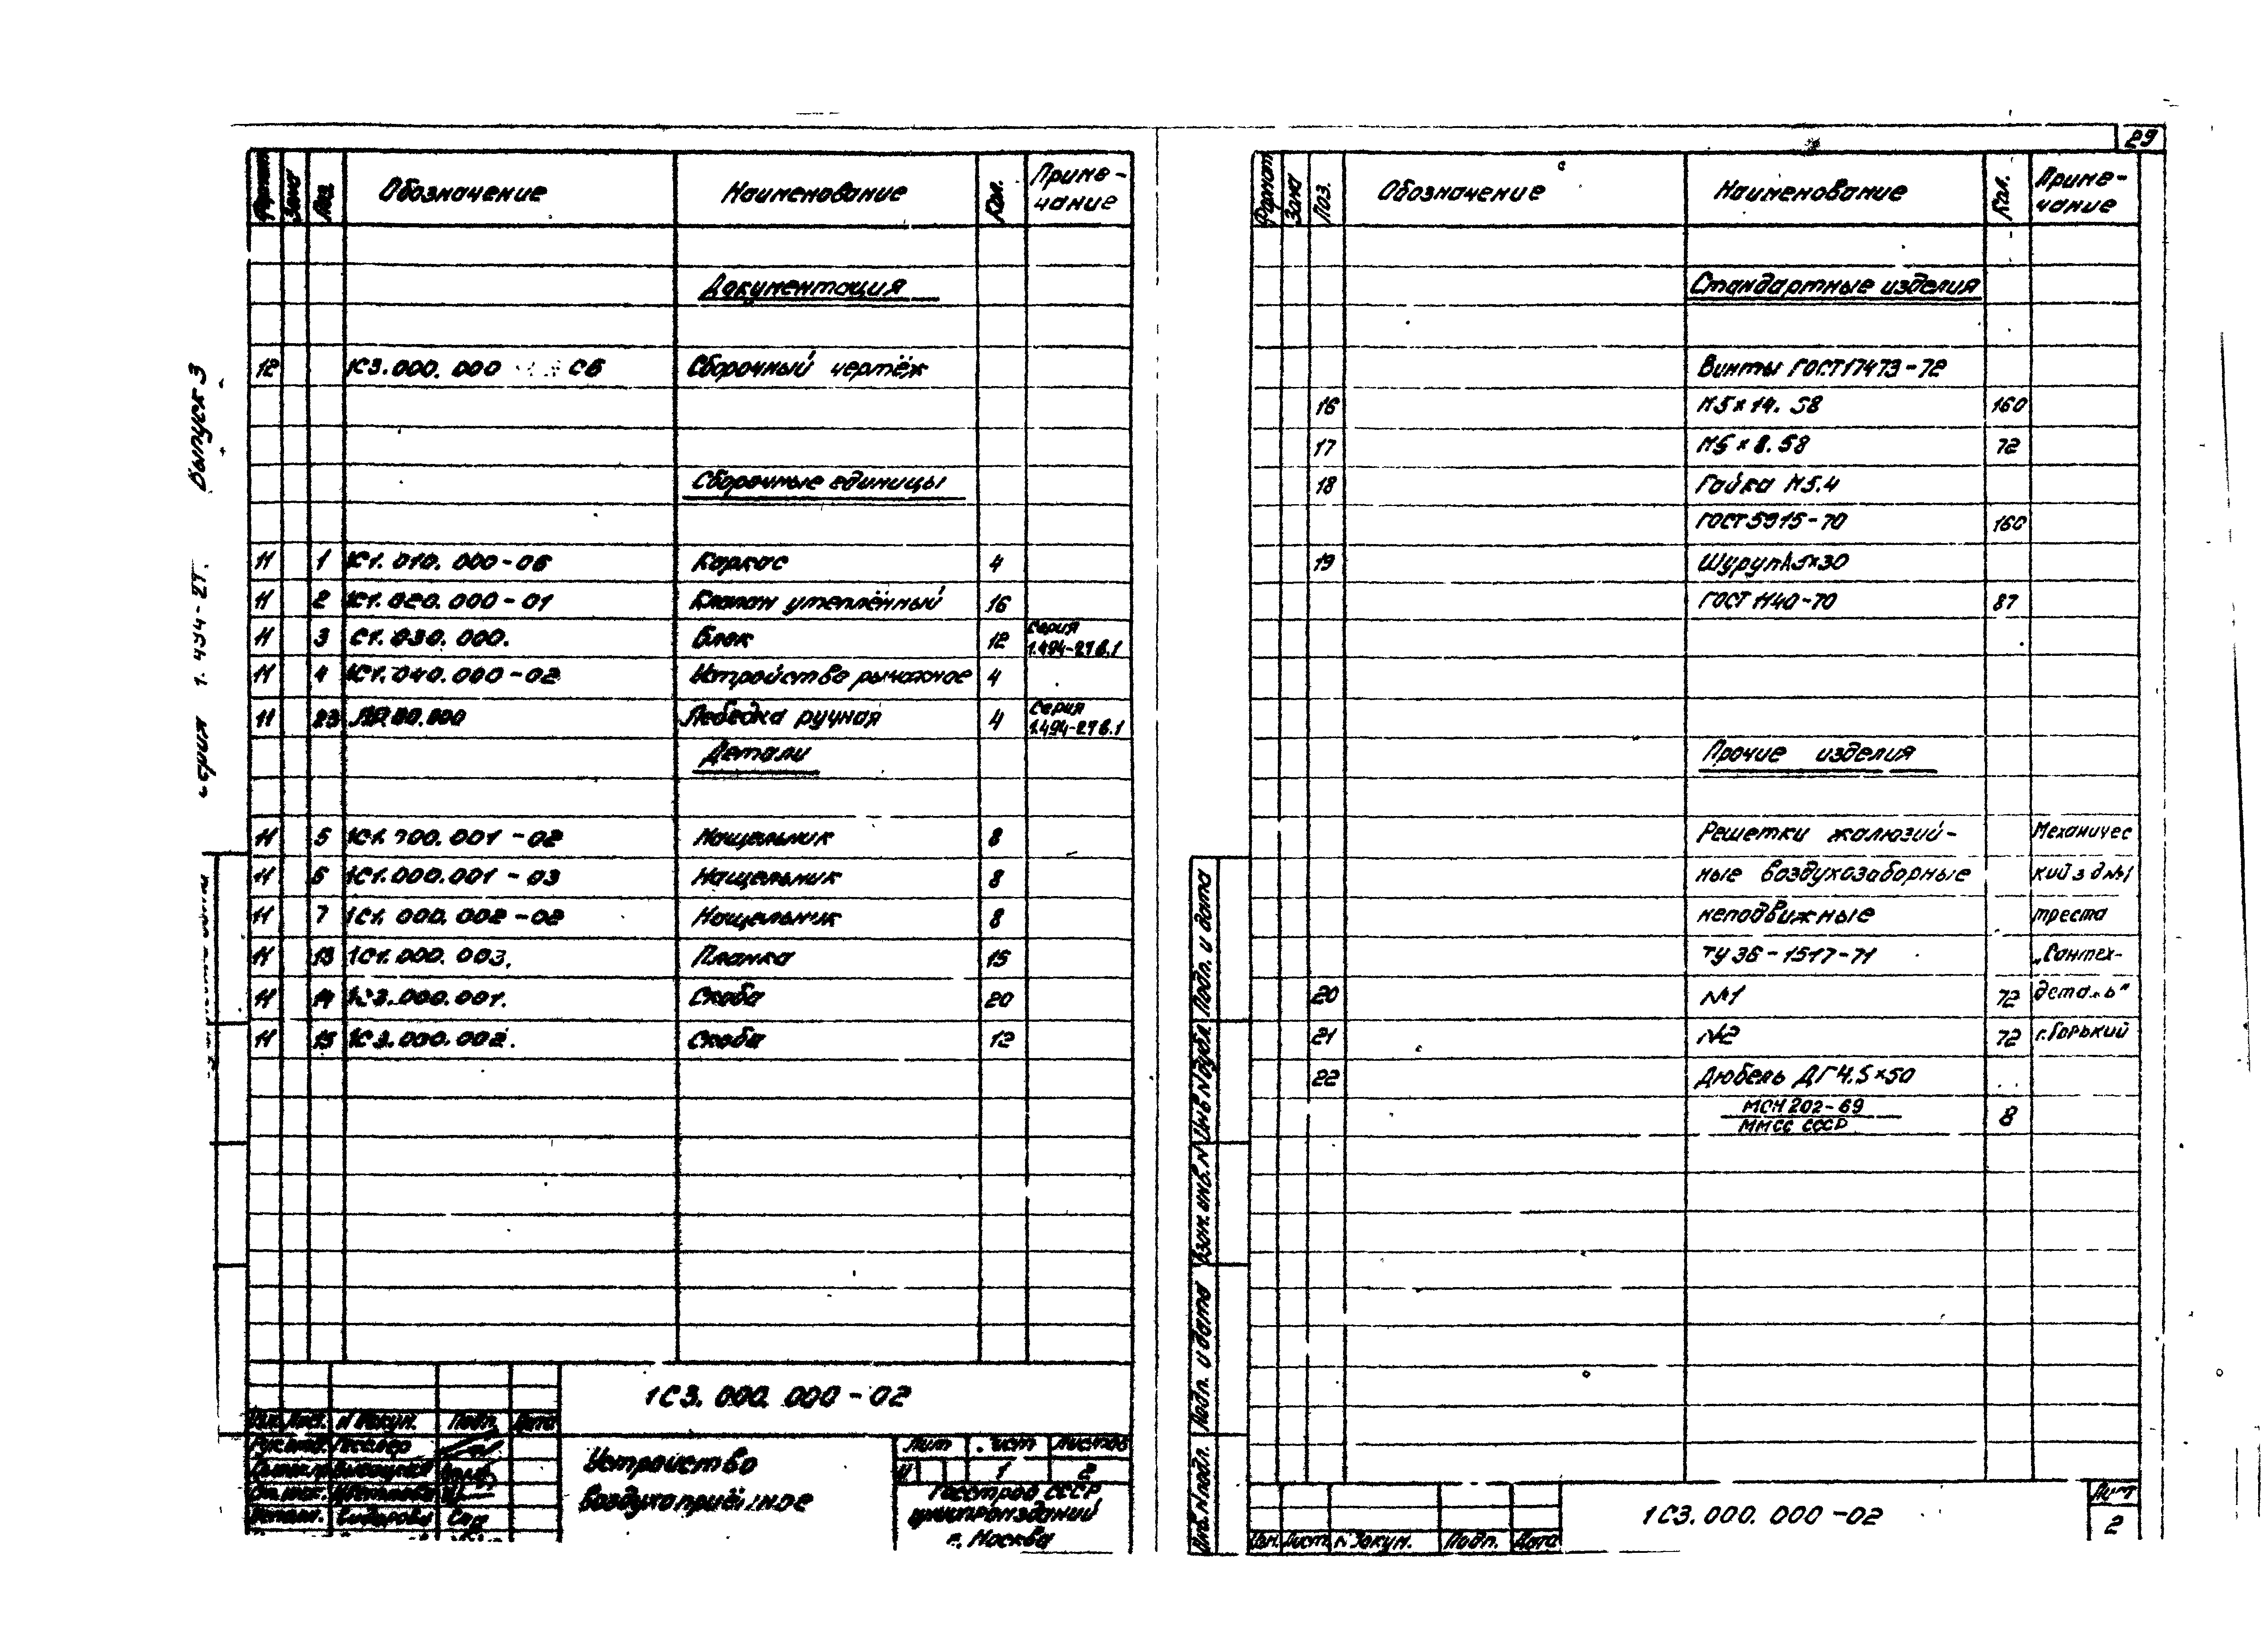 29
серия 1.494-27. Выпуск 3
Формат Зона Поз. Обозначение Наименование Кол. Приме-
чание
Документация
12 1С3.000.000 СБ Сборочный чертёж
Сборочные единицы
11 1 1С1.010.000-06 Каркас 4
11 2 1С1.020.000-01 Клапан утеплённый 16
11 3 С1.030.000. Блок 12 Серия
1.494-27 в.1
11 4 1С1.040.000-02 Устройство рычажное 4
11 23 00.000 Лебедка ручная 4 Серия
1.494-27 в.1
Детали
11 5 1С1.000.001-02 Нащельник 8
11 6 1С1.000.001-03 Нащельник 8
11 7 1С1.000.002-02 Нащельник 8
11 13 1С1.000.003. Планка 15
11 14 1С3.000.001. Скоба 20
11 15 1С3.000.002. Скоба 12
1С3.000.000-02
Изм. Лист. N докум. Подп. Дата
Устройство
воздухоприёмное
Лит Лист Листов
И 1 2
Госстрой СССР
цниипромзданий
г. Москва
Формат Зона Поз. Обозначение Наименование Кол. Приме-
чание
Стандартные изделия
Винты ГОСТ 17473-72
16 М5×14.58 160
17 М5×8.58 72
18 Гайка М5.4
ГОСТ 5915-70 160
19 Шуруп А5×30
ГОСТ 1140-70 87
Прочие изделия
Решетки жалюзий- Механичес
ные воздухозаборные кий з-д №1
неподвижные треста
ТУ 36-1517-71 „Сантех-
20 №1 72 деталь"
21 №2 72 г.Горький
22 Дюбель ДГ 4.5×50
МСН 202-69
ММСС СССР 8
Инв.N подл. Подп. и дата Взам.инв.N Инв.N дубл. Подп. и дата
Изм. Лист N докум. Подп. Дата
1С3.000.000-02
Лист
2